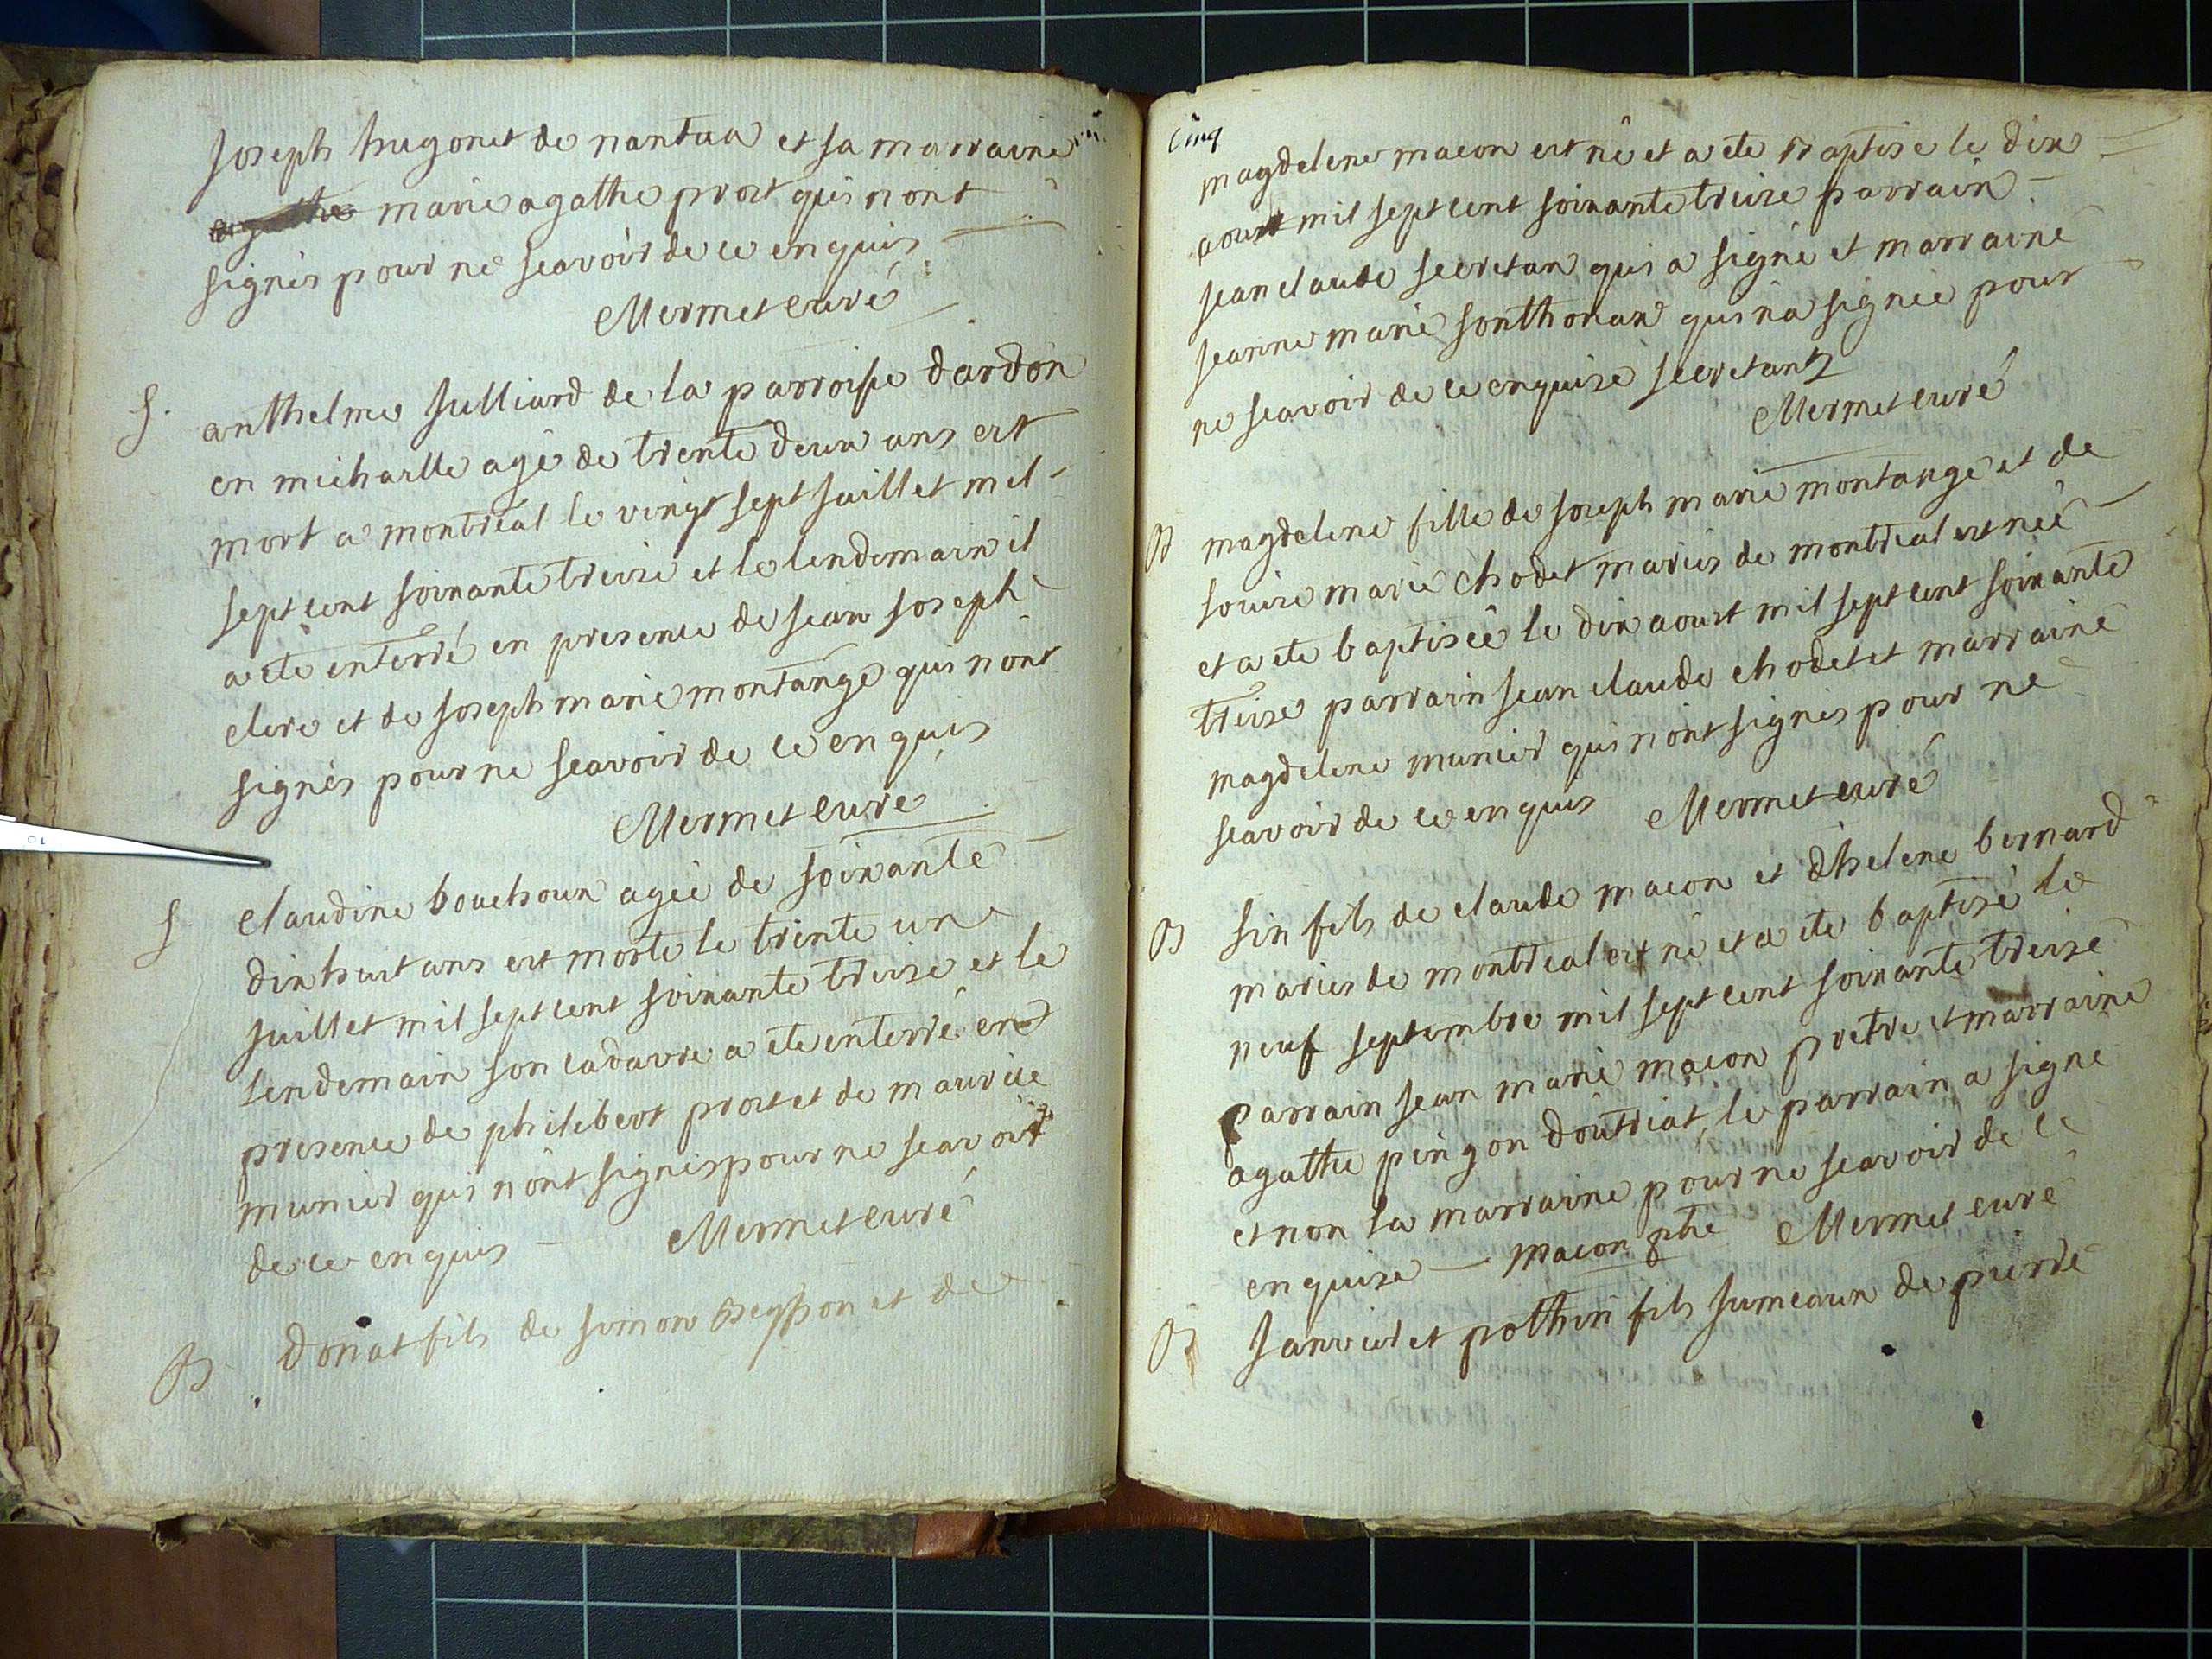 Joseph hugonet de nantua et sa marraine
agathe marie agathe prost qui n ont
signés pour ne scavoir de ce enquis
Mermet curé
S. anthelme Julliard de la parroisse dardon
en michaille agé de trente deux ans est
mort a montreal le vingt sept juillet mil
sept cent soixante treize et le lendemain il
a ete enterré en presence de jean joseph
clerc et de joseph marie montange qui n ont
signés pour ne scavoir de ce enquis
Mermet curé
S claudine bouchoux agée de soixante
dix huit ans est morte le trente un
Juillet mil sept cent soixante treize et le
lendemain son cadavre a ete enterré en
presence de philibert prost et de maurice
munier qui n ont signés pour ne scavoir
de ce enquis Mermet curé
B donat fils de simon et de
Cinq
magdelene macon est né et a ete baptisé le dix
aoust mil sept cent soixante treize parrain
jean claude secretan qui a signé et marraine
jeanne marie sonthonax qui n a signée pour
ne scavoir de ce enquise secretant
Mermet curé
B magdelene fille de joseph marie montange et de
louise marie chodet mariés de montreal est née
et a ete baptisée le dix aoust mil sept cent soixante
treize parrain jean claude chodet et marraine
magdelene munier qui n ont signés pour ne
scavoir de ce enquis Mermet curé
B fils de claude macon et d helene bernard
mariés de montreal est né et a ete baptisé le
neuf septembre mil sept cent soixante treize
parrain jean marie macon pretre et marraine
agathe pingon doutriat, le parrain a signé
et non la marraine pour ne scavoir de ce
enquise macon ptre Mermet curé
B Janvier et pothin fils jumeaux de pierre